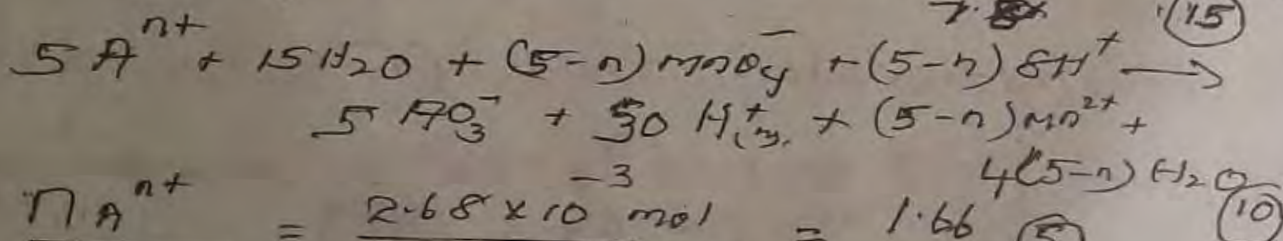 (15)
5A^n+ + 15H2O + (5-n)MnO4^- + (5-n)8H^+ →
5AO3^- + 30H^+ + (5-n)Mn^2+ +
4(5-n)H2O
(10)
n A^n+ = 2.68 × 10^-3 mol = 1.66 (5)